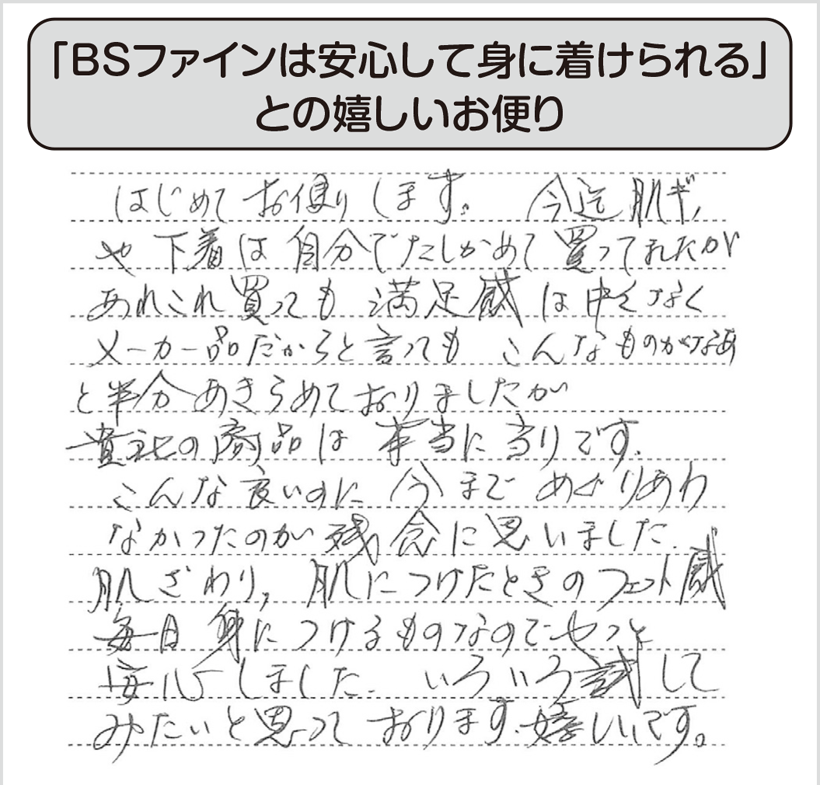 「BSファインは安心して身に着けられる」
との嬉しいお便り
はじめてお便りします。 今迄肌ギ、
や下着は自分でたしかめて買ってれたが
あれこれ買っても満足感は中々なく
メーカー品だからと言っても こんなものかなあ
と半分あきらめておりましたが
貴社の商品は本当に当りです。
こんな良いのに今までめぐりあわ
なかったのが残念に思いました。
肌ざわり, 肌につけたときのフィット感
毎日身につけるものなのでやっと
安心しました。 いろいろ試して
みたいと思っております。嬉しいです。